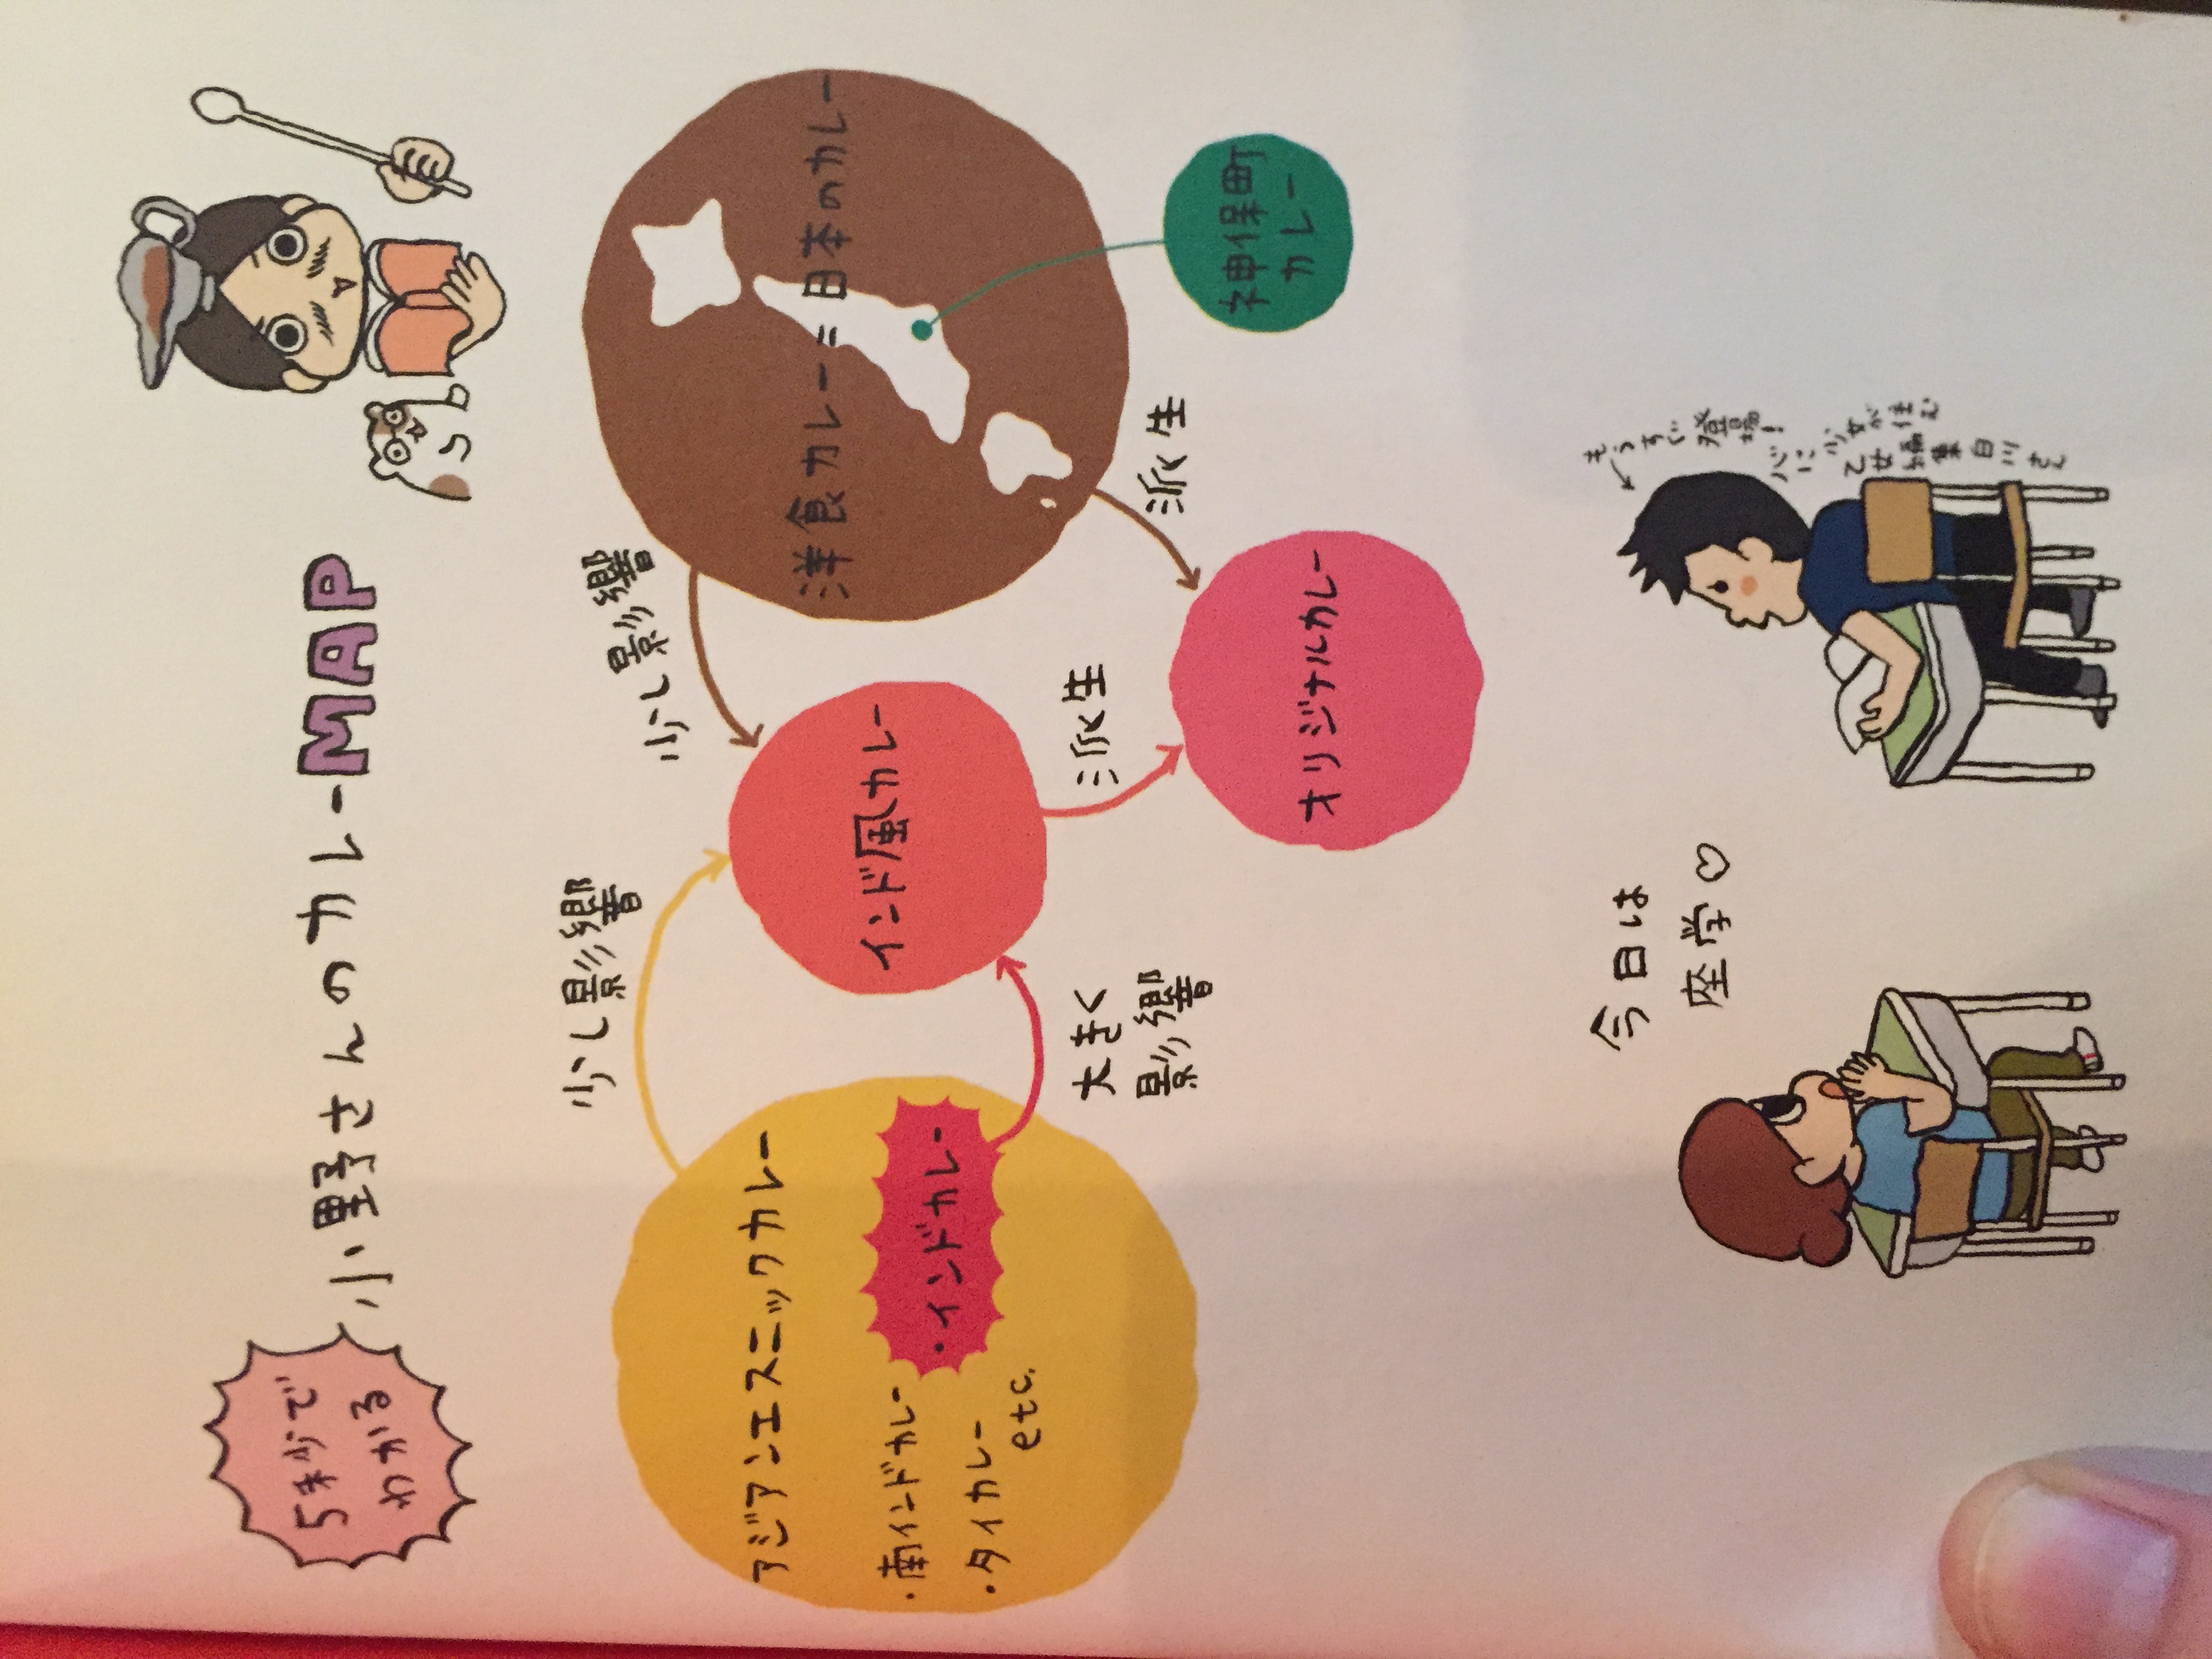 5秒で
わかる
小野さんのカレーMAP
少し影響
少し影響
アジアンエスニックカレー
・南インドカレー
・インドカレー
・タイカレー
etc.
インド風カレー
洋食カレー=日本のカレー
大きく
影響
派生
派生
神保町
カレー
オリジナルカレー
今日は
座学♡
もうすぐ登場!
心に少女が住む
乙女編集白川さん